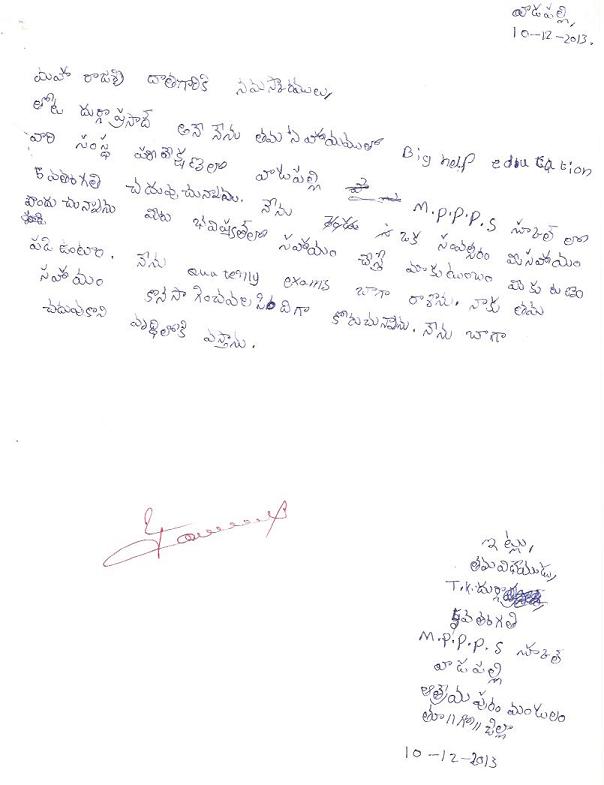 వాడపల్లి,
10-12-2013.
మహా రాజశ్రీ దాతగారికి నమస్కారములు,
తోట దుర్గాప్రసాద్ అనే నేను తమ సహాయములో Big help education
వారి సంస్థ పర్యవేక్షణలో వాడపల్లి M.P.P.P.S స్కూల్ లో
5వతరగతి చదువుచున్నాను. నేను ఒక సంవత్సరం మీ సహాయం
పొందుచున్నాను మీరు భవిష్యత్‌లో సహాయం చేస్తే మా కుటుంబం మీకు రుణ
పడి ఉంటాం. నేను quarterly exams బాగా రాశాను. నాకు తమ
సహాయం కొనసాగించవలసిందిగా కోరుచున్నాను. నేను బాగా
చదువుకొని వృద్ధిలోకి వస్తాను.
ఇట్లు,
తమ విధేయుడు,
T.K. దుర్గా
5వ తరగతి
M.P.P.P.S స్కూల్
వాడపల్లి
ఆత్రేయపురం మండలం
తూ॥గో॥జిల్లా
10-12-2013